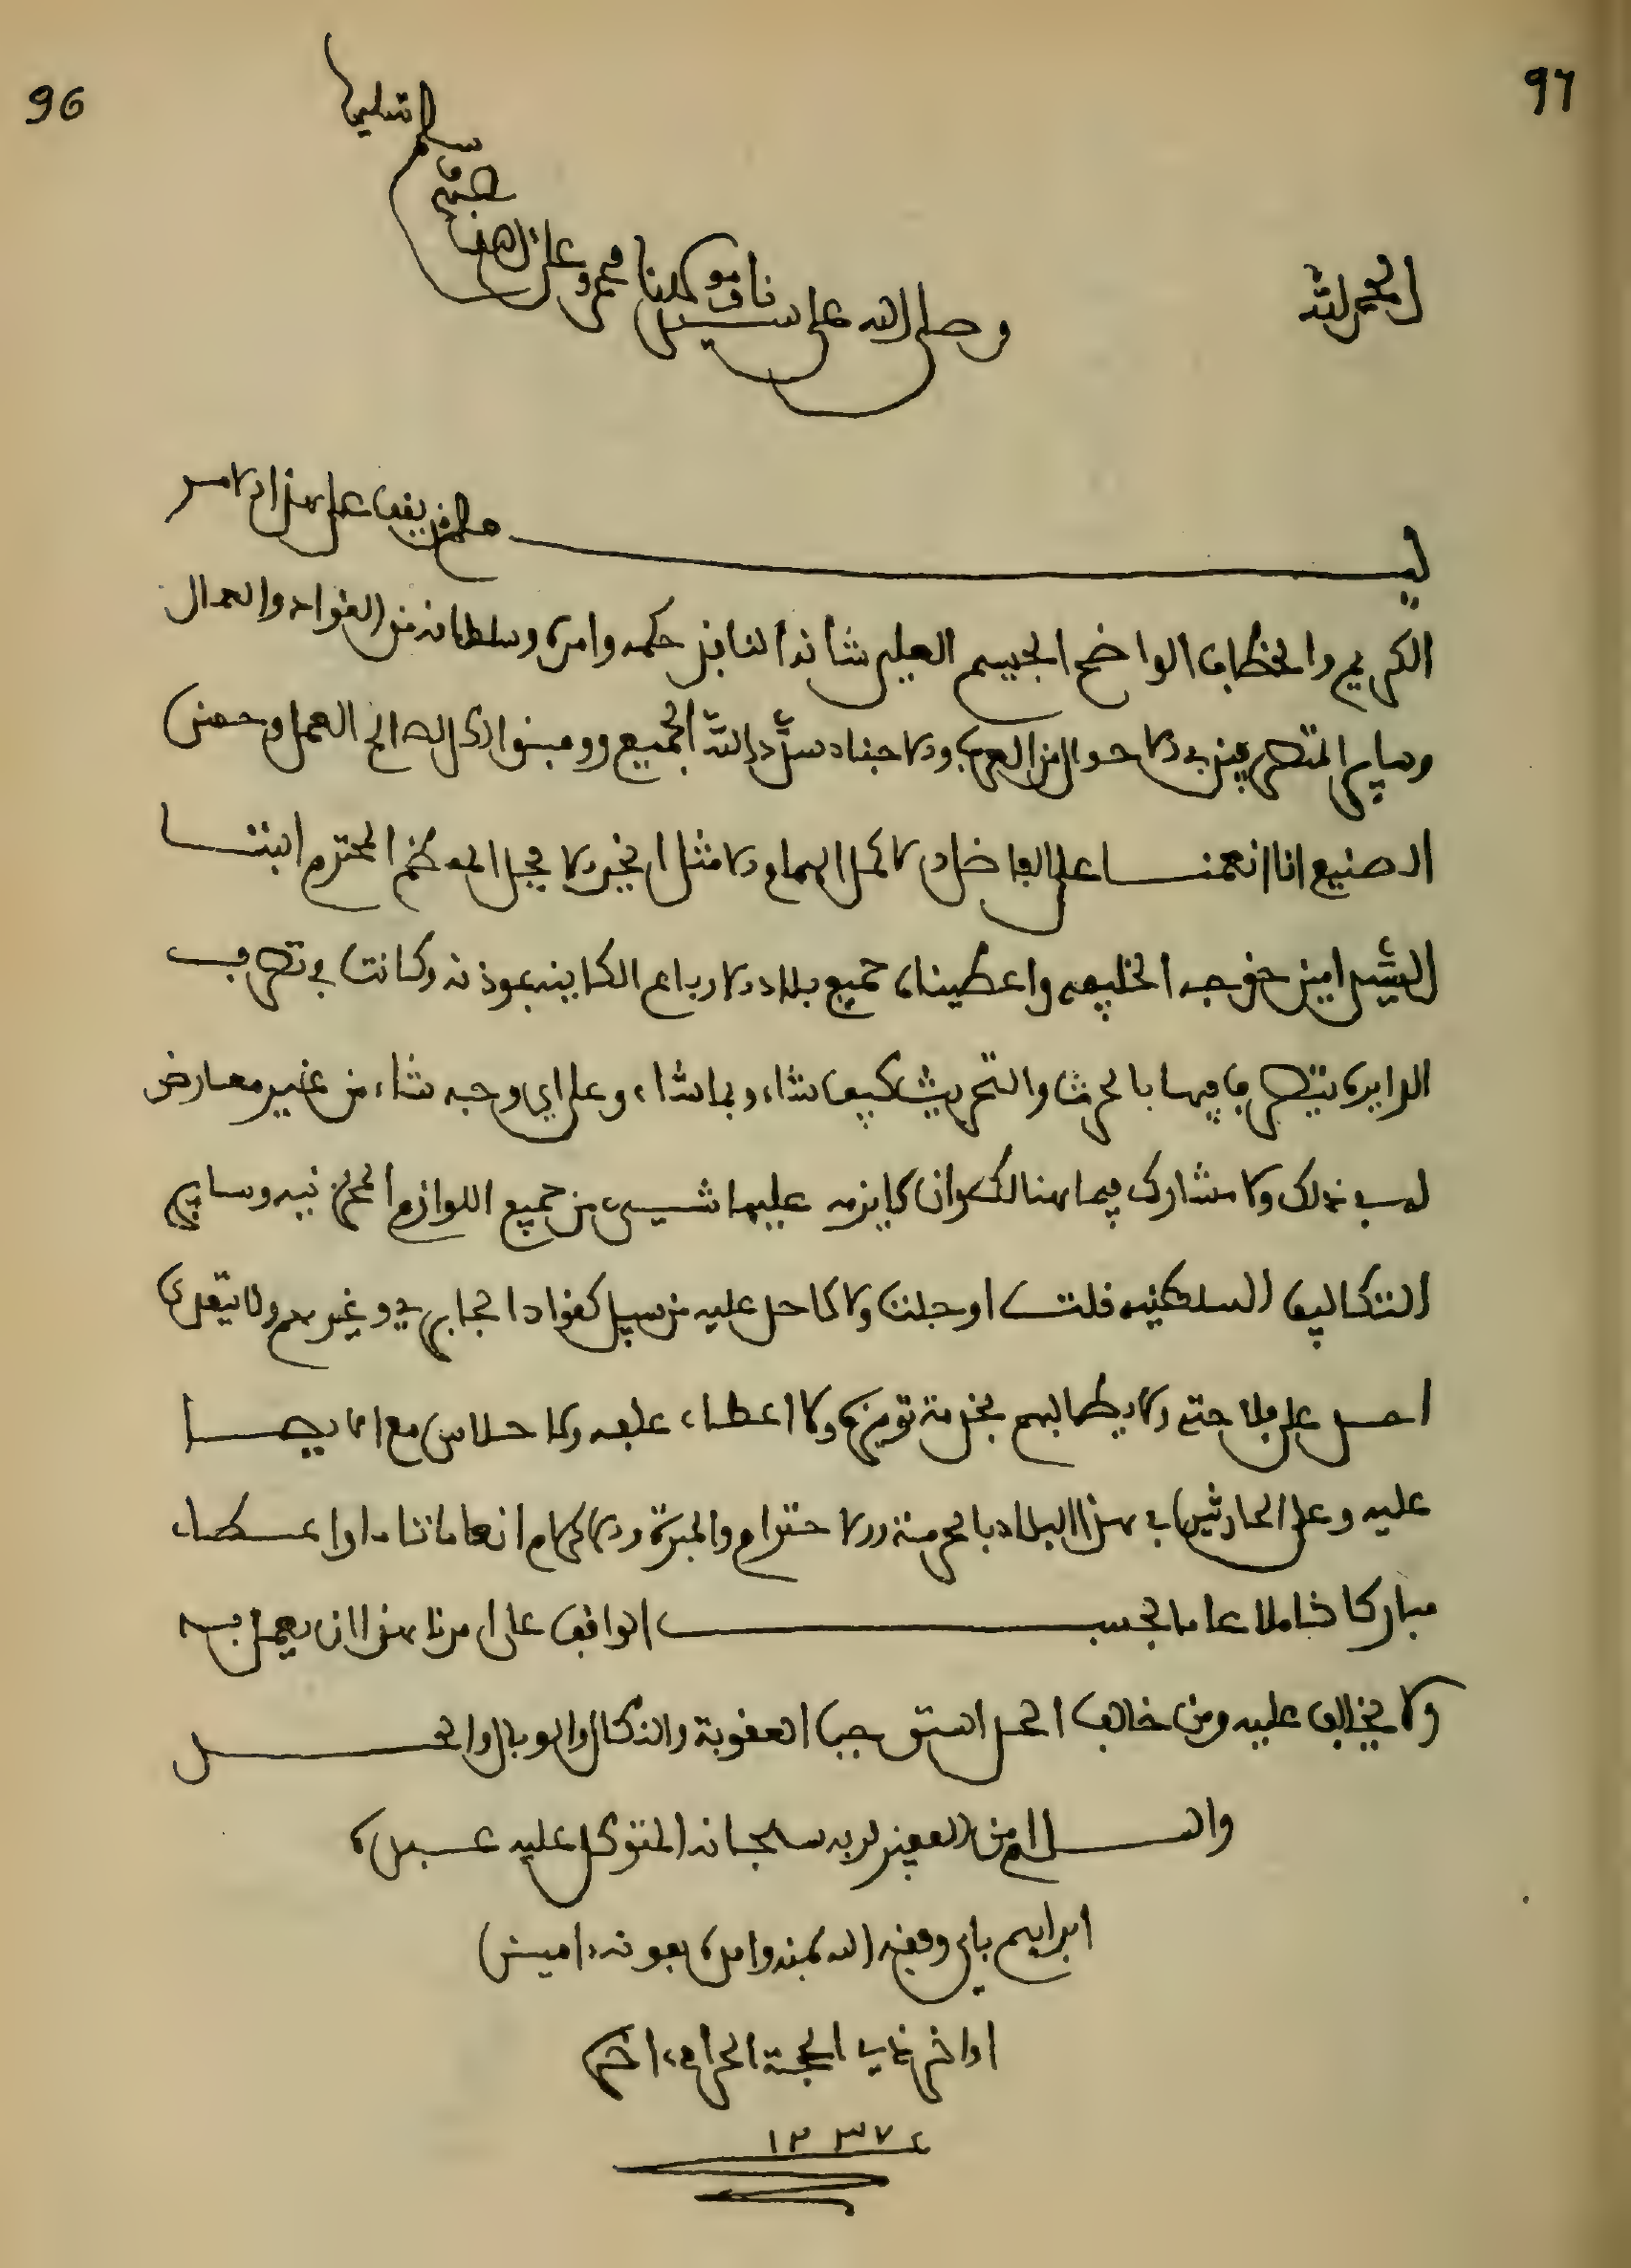 96
97
الحمد لله
وصلى الله على سيدنا ومولانا محمد وعلى آله
وصحبه
وسلم تسليما
ليعلم من يقف على هذا الامر
الكريم والخطاب الواضح الجسيم العلي شانه النافذ حكمه وامره وسلطانه من القواد والعمال
وساير المتصرفين في الاحوال من العرب والاجناد سدد الله الجميع ووفقنا الى الصالح العمل وحسن
الصنيع اننا انعمنا على الفاضل الاكمل الهمام الامثل الخير الاجل المعظم المحترم ابننا
السيد امين خوجه الخليفه واعطيناه جميع بلاد الارباع الكاينه وكانت في تصرف
الدايره يتصرف فيها بالحرث والتحريث كيف شاء وبما شاء وعلى اي وجه شاء من غير معارض
له في ذلك ولا مشارك فيما هنالك وان لا يلزمه عليها شيء من جميع اللوازم المخزنيه وساير
التكاليف السلطنيه قلت او جلت ولا لاحد عليه من سبيل كقواد الجابري وغيرهم ولا يتعدى
احد على فلاحته ولا يطالبهم بخدمة تويزه ولا اعطاء علفه ولا حلاس مع ما
عليه وعلى الحارثين في هذا البلاد بالحرمة والاحترام والمبرة والاكرام انعاما تاما واعطاء
مباركا شاملا عاما بحسب الواقف على امرنا هذا ان يعمل به
ولا يخالف عليه ومن خالف الحد استوجب العقوبة والنكال والوبال والحد
والسلام من الفقير لربه سبحانه المتوكل عليه عبده
ابراهيم باي وفقه الله بمنه وامده بعونه امين
اواخر ذي الحجة الحرام اخر
١٢٣٧ ٤